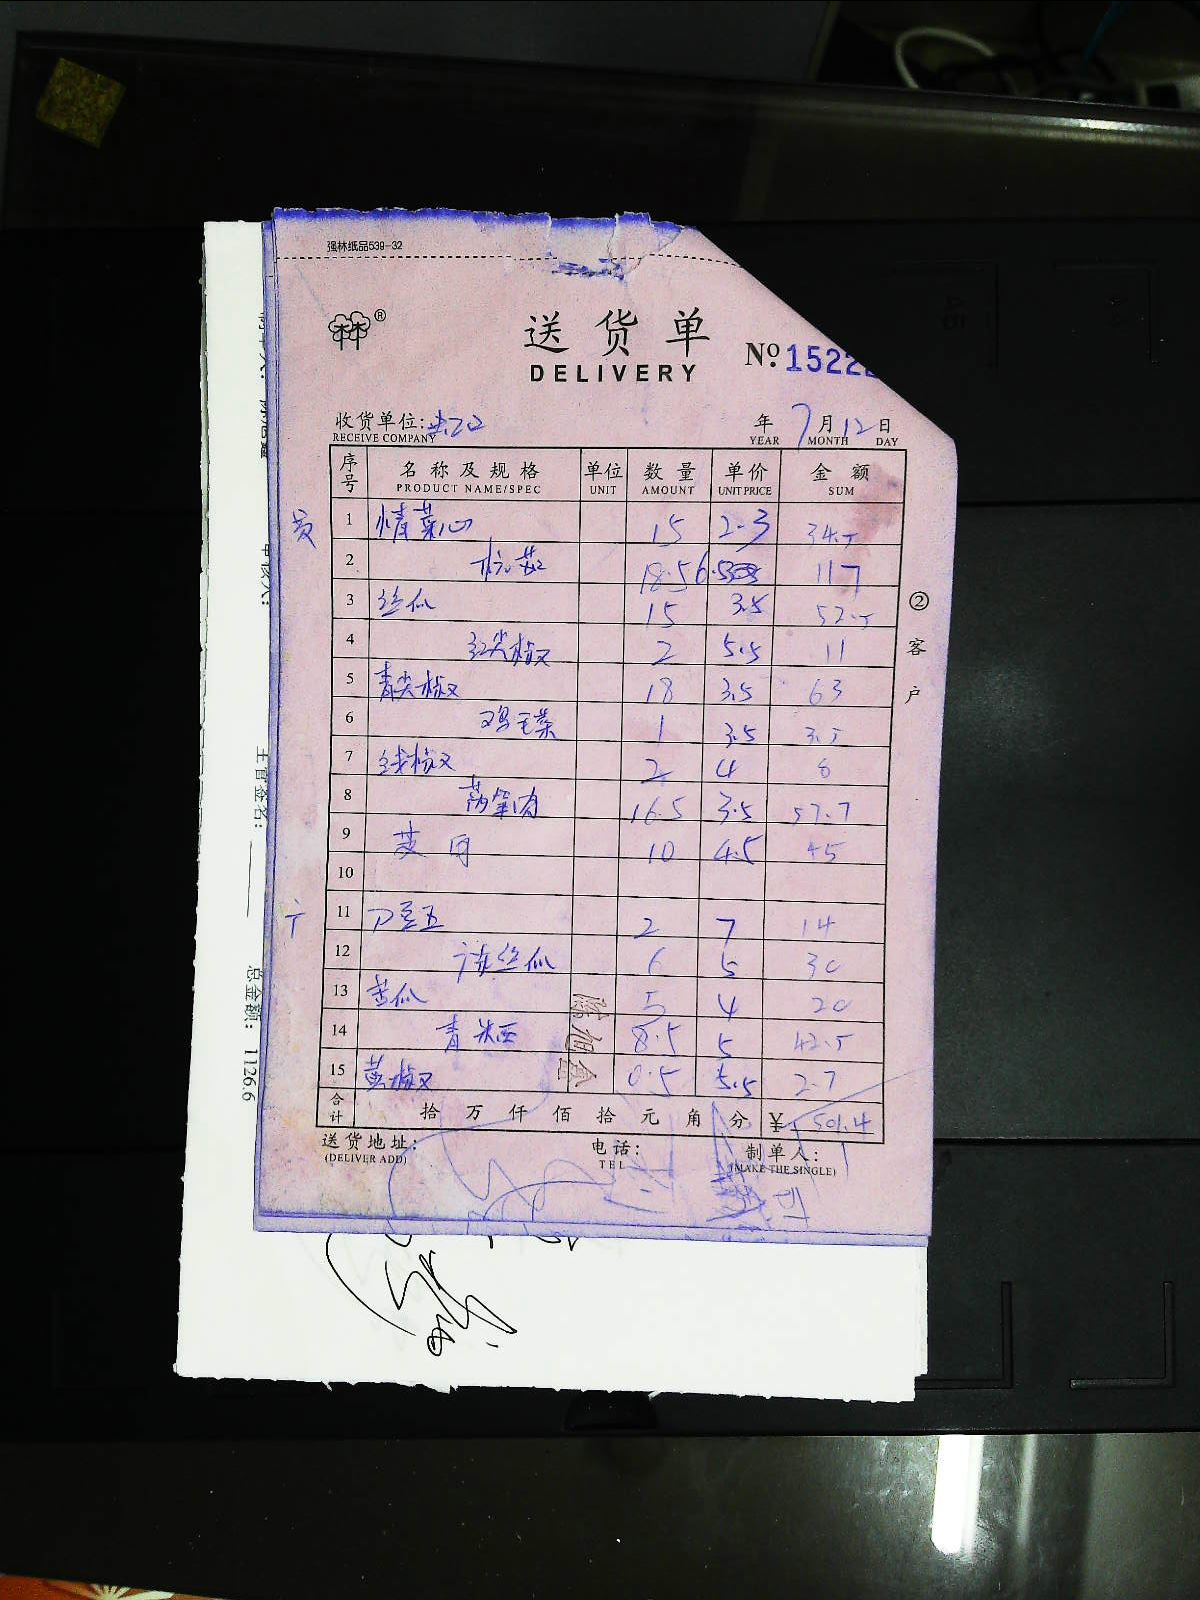 强林纸品539-32
林林®
送货单
DELIVERY
No. 1522
收货单位:
RECEIVE COMPANY
年 7月12日
YEAR MONTH DAY
序号 名称及规格 单位 数量 单价 金额
PRODUCT NAME/SPEC UNIT AMOUNT UNIT PRICE SUM
1 精菜心 15 2.3 34.5
2 18.5 6.5 117
3 丝瓜 15 3.5 52.5
4 红尖椒 2 5.5 11
5 青尖椒 18 3.5 63
6 鸡毛菜 1 3.5 3.5
7 线椒 2 4 8
8 莴笋肉 16.5 3.5 57.7
9 10 4.5 45
10
11 刀豆 2 7 14
12 丝瓜 6 5 30
13 苦瓜 5 4 20
14 青 8.5 5 42.5
15 黄椒 0.5 5.5 2.7
合计 拾万仟佰拾元角分 ¥ 501.4
送货地址:
(DELIVER ADD)
电话:
TEL
制单人:
(MAKE THE SINGLE)
②客户
主管签名:
总金额: 1126.6